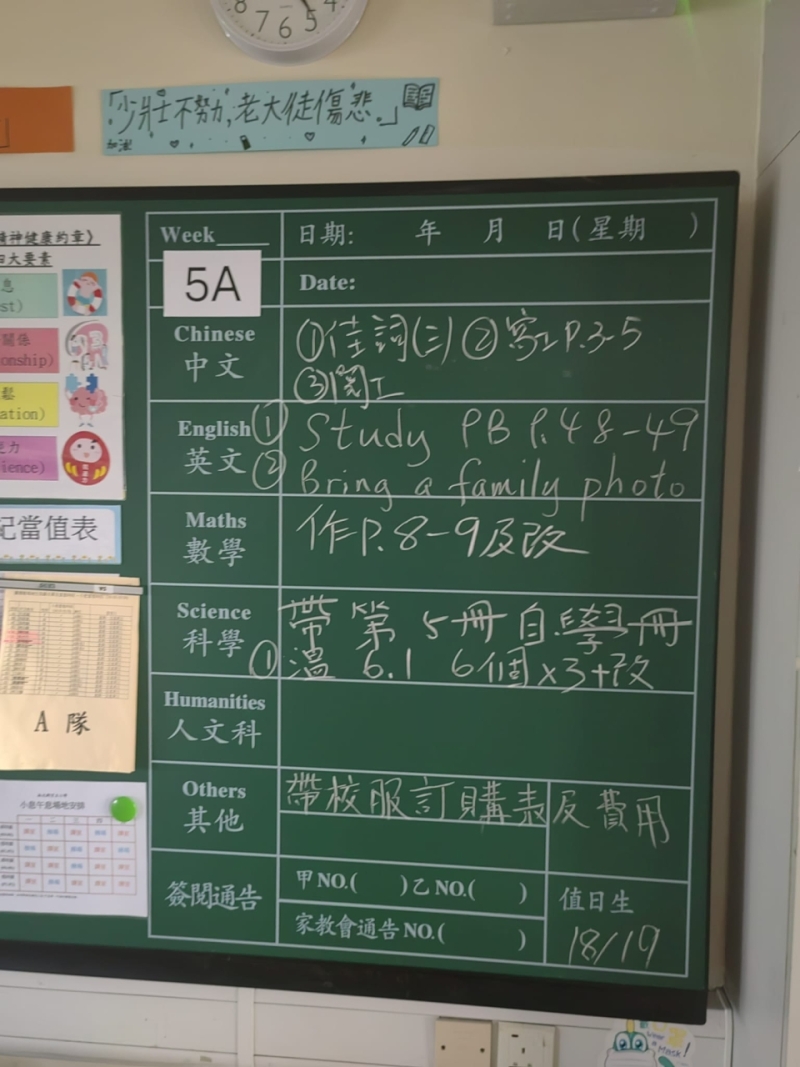 8 7 6 5 4
「少壯不努力,老大徒傷悲。」
加油!
精神健康約章》
四大要素
息
st)
關係
onship)
鬆
ation)
ience)
記當值表
A 隊
小息午息場地安排
Week____ 日期: 年 月 日(星期 )
5A Date:
Chinese 中文
①佳詞(三) ②寫工P.3-5
③閱工
English 英文
① Study PB P.48-49
② Bring a family photo
Maths 數學
作P.8-9及改
Science 科學
帶 第 5冊 自學冊
① 溫 6.1 6個x3+改
Humanities 人文科
Others 其他
帶校服訂購表及費用
簽閱通告
甲NO.( )乙NO.( )
家教會通告NO.( )
值日生
18/19
Wear a Mask!